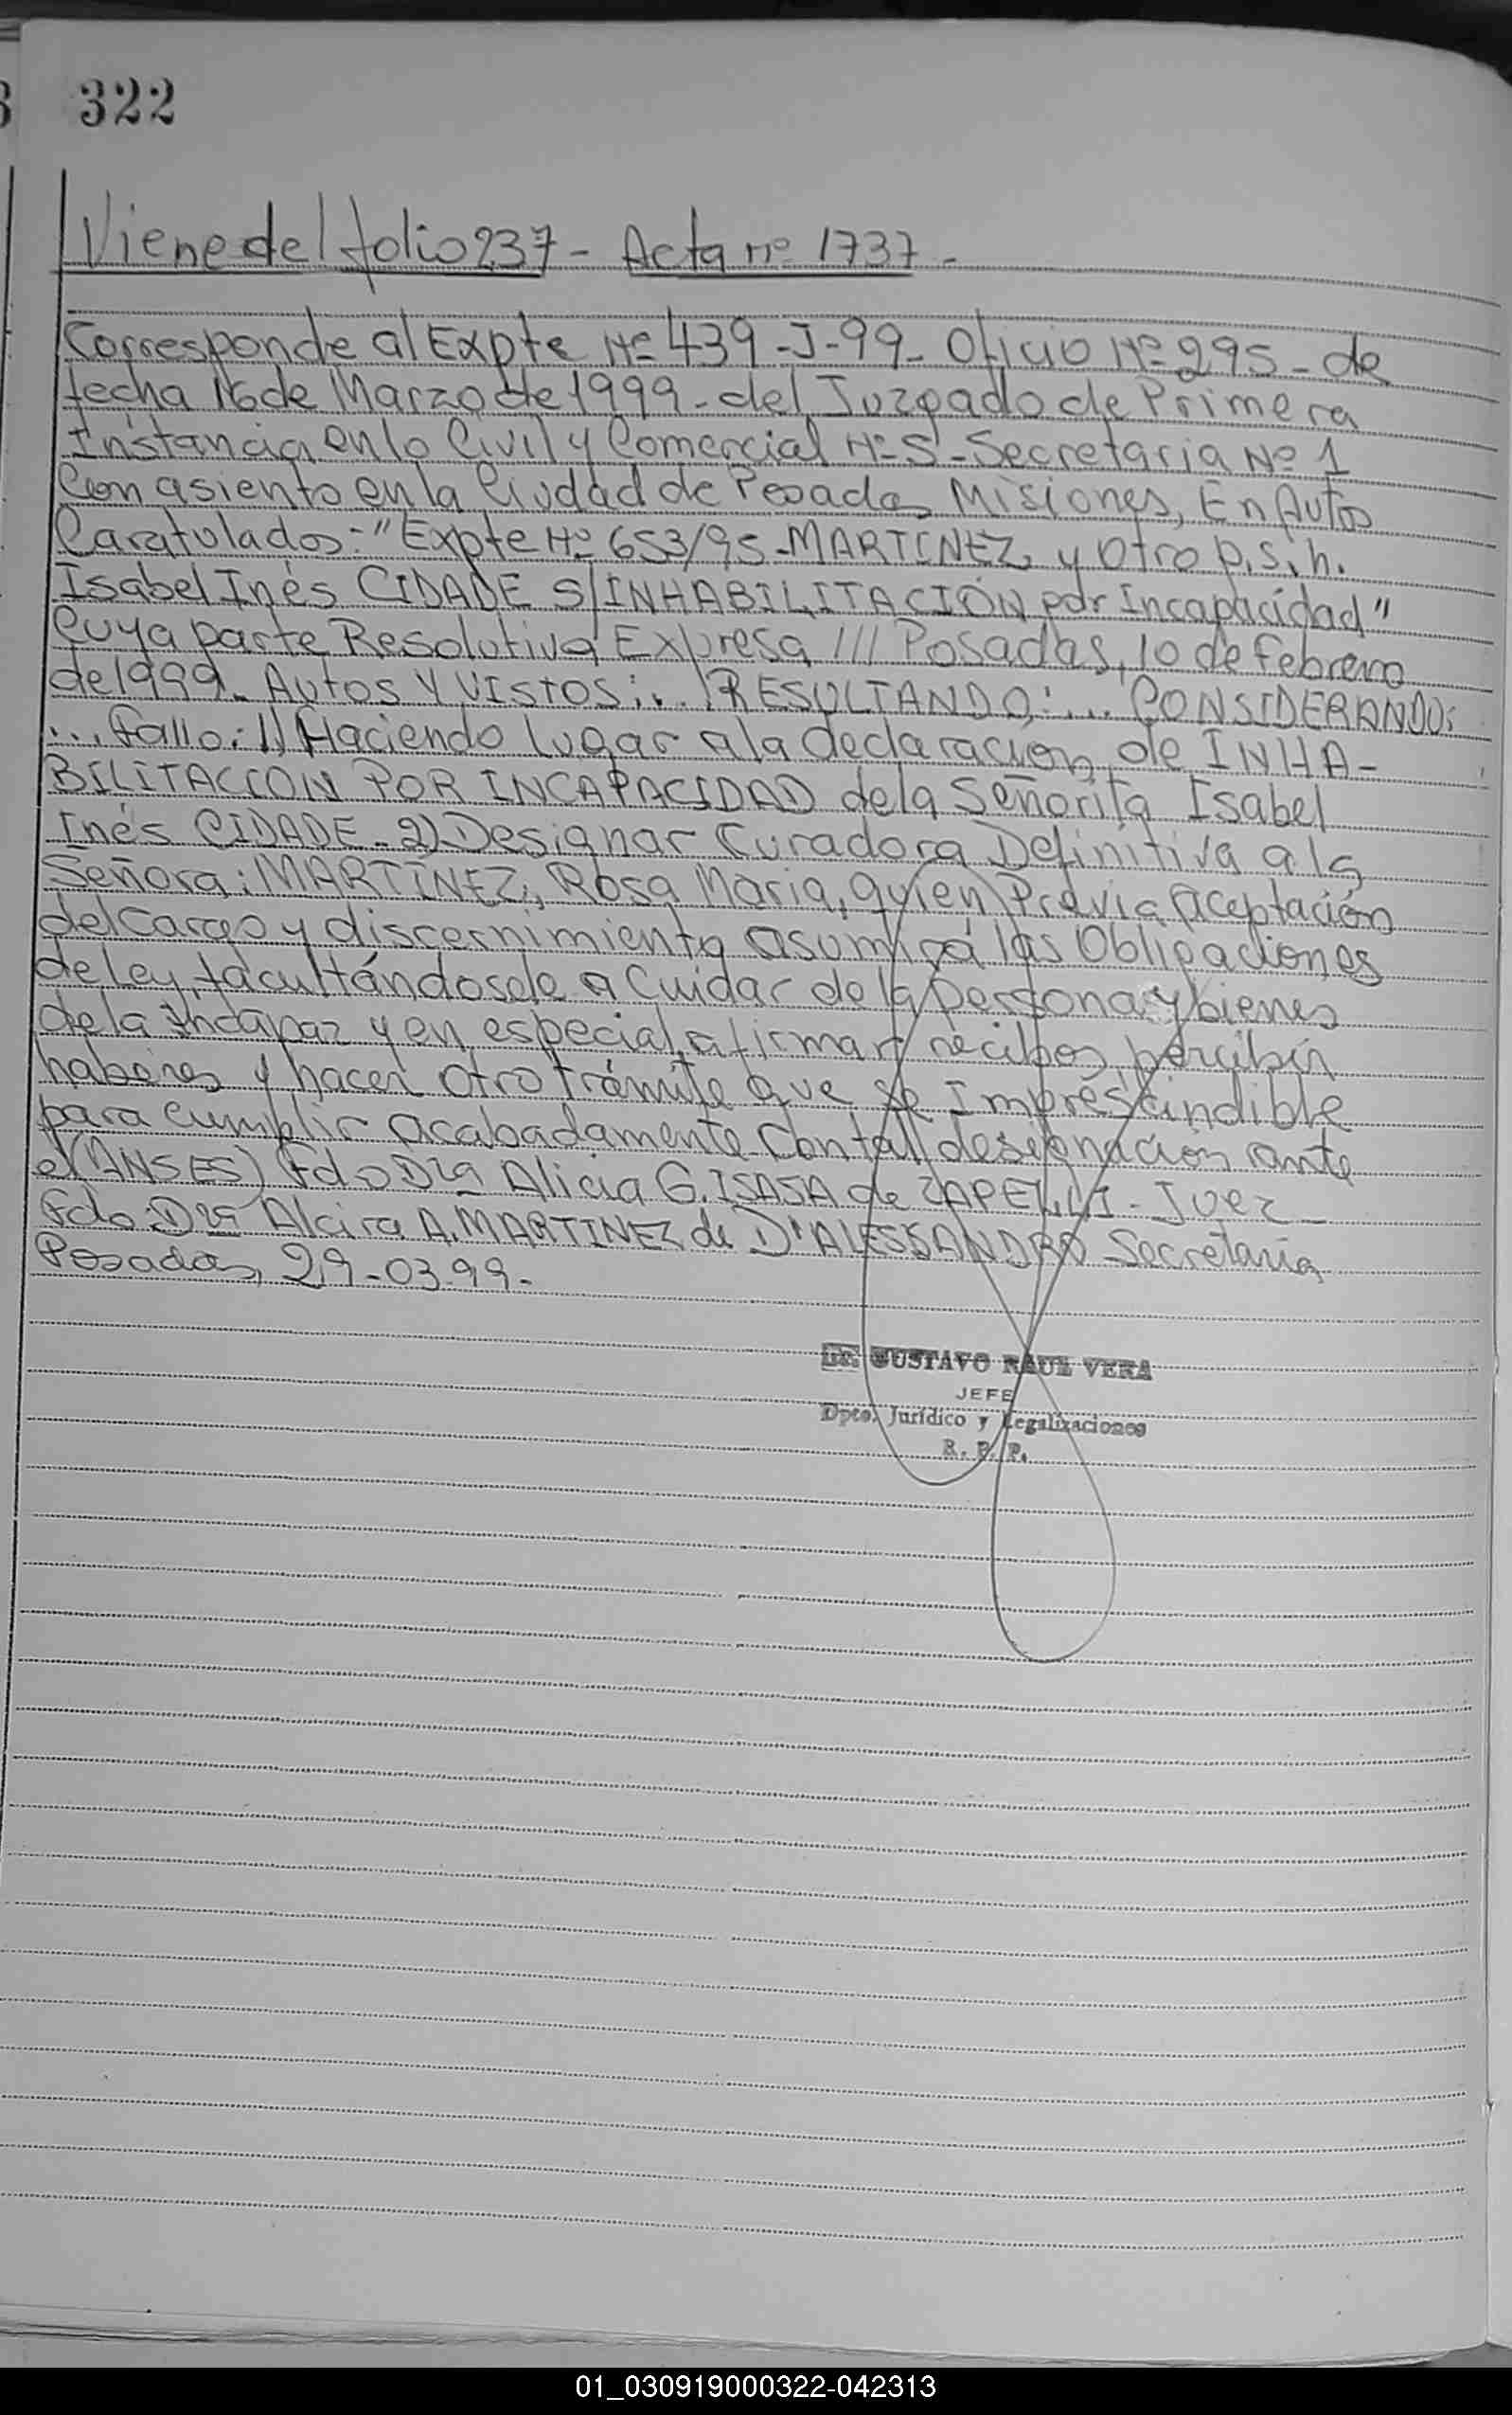 322
Viene del folio 237 - Acta nº 1737 -
Corresponde al Expte Nº 439-J-99- Oficio Nº 295 - de
fecha 16 de Marzo de 1999 - del Juzgado de Primera
Instancia en lo Civil y Comercial Nº 5 - Secretaria Nº 1
Con asiento en la Ciudad de Posadas Misiones, En Autos
Caratulados: "Expte Nº 653/95 - MARTINEZ y Otro p.s.h.
Isabel Inés CIDADE S/INHABILITACIÓN por Incapacidad"
Cuya parte Resolutiva Expresa /// Posadas, 10 de febrero
de 1999. Autos Y VISTOS:.. RESULTANDO:... CONSIDERANDO:
... fallo: 1) Haciendo Lugar a la declaración de INHA-
BILITACION POR INCAPACIDAD de la Señorita Isabel
Inés CIDADE - 2) Designar Curadora Definitiva a la
Señora: MARTINEZ, Rosa Maria, quien Previa aceptación
del cargo y discernimiento asumirá las Obligaciones
de Ley, facultándosele a Cuidar de la persona y bienes
de la Incapaz y en especial a firmar recibos, percibir
haberes y hacer otro trámite que se Impréscindible
para cumplir acabadamente con tal designación ante
el (ANSES) Fdo Dra Alicia G. ISASA de ZAPELLI - Juez -
Fdo: Dra Alcira A. MARTINEZ de D'ALESSANDRO Secretaria
Posadas, 29-03-99-
Dr. GUSTAVO RAUL VERA
JEFE
Dpto. Jurídico y Legalizaciones
R. P. P.
01_030919000322-042313